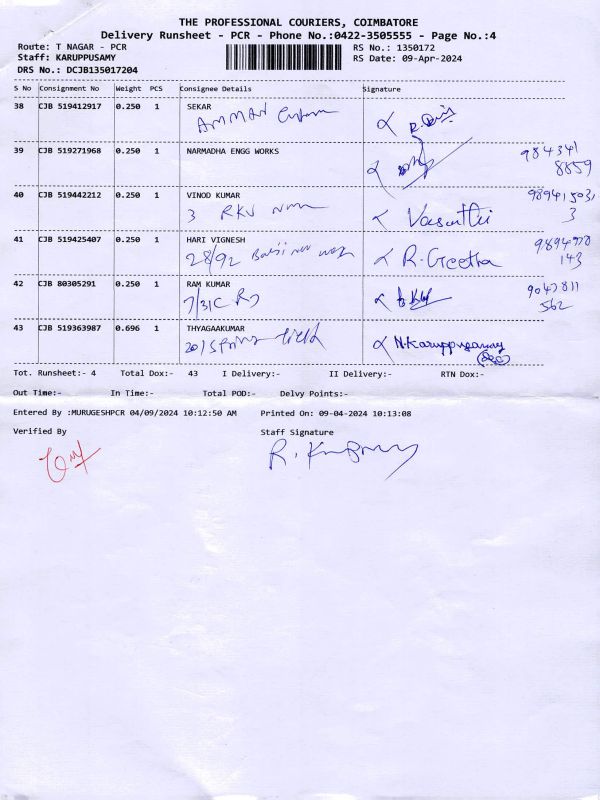 THE PROFESSIONAL COURIERS, COIMBATORE
Delivery Runsheet - PCR - Phone No.:0422-3505555 - Page No.:4
Route: T NAGAR - PCR
Staff: KARUPPUSAMY
DRS No.: DCJB135017204
RS No.: 1350172
RS Date: 09-Apr-2024
S No Consignment No Weight PCS Consignee Details Signature
38 CJB 519412917 0.250 1 SEKAR
AMMAN
39 CJB 519271968 0.250 1 NARMADHA ENGG WORKS
984341
8859
40 CJB 519442212 0.250 1 VINOD KUMAR
3 RKV Vasanthi
989415031
3
41 CJB 519425407 0.250 1 HARI VIGNESH
28/92 R.Geetha
9894970
143
42 CJB 80305291 0.250 1 RAM KUMAR
7/31C
9047811
562
43 CJB 519363987 0.696 1 THYAGAAKUMAR
20/ Spring field N.Karuppusamy
Tot. Runsheet:- 4 Total Dox:- 43 I Delivery:- II Delivery:- RTN Dox:-
Out Time:- In Time:- Total POD:- Delvy Points:-
Entered By :MURUGESHPCR 04/09/2024 10:12:50 AM Printed On: 09-04-2024 10:13:08
Verified By Staff Signature